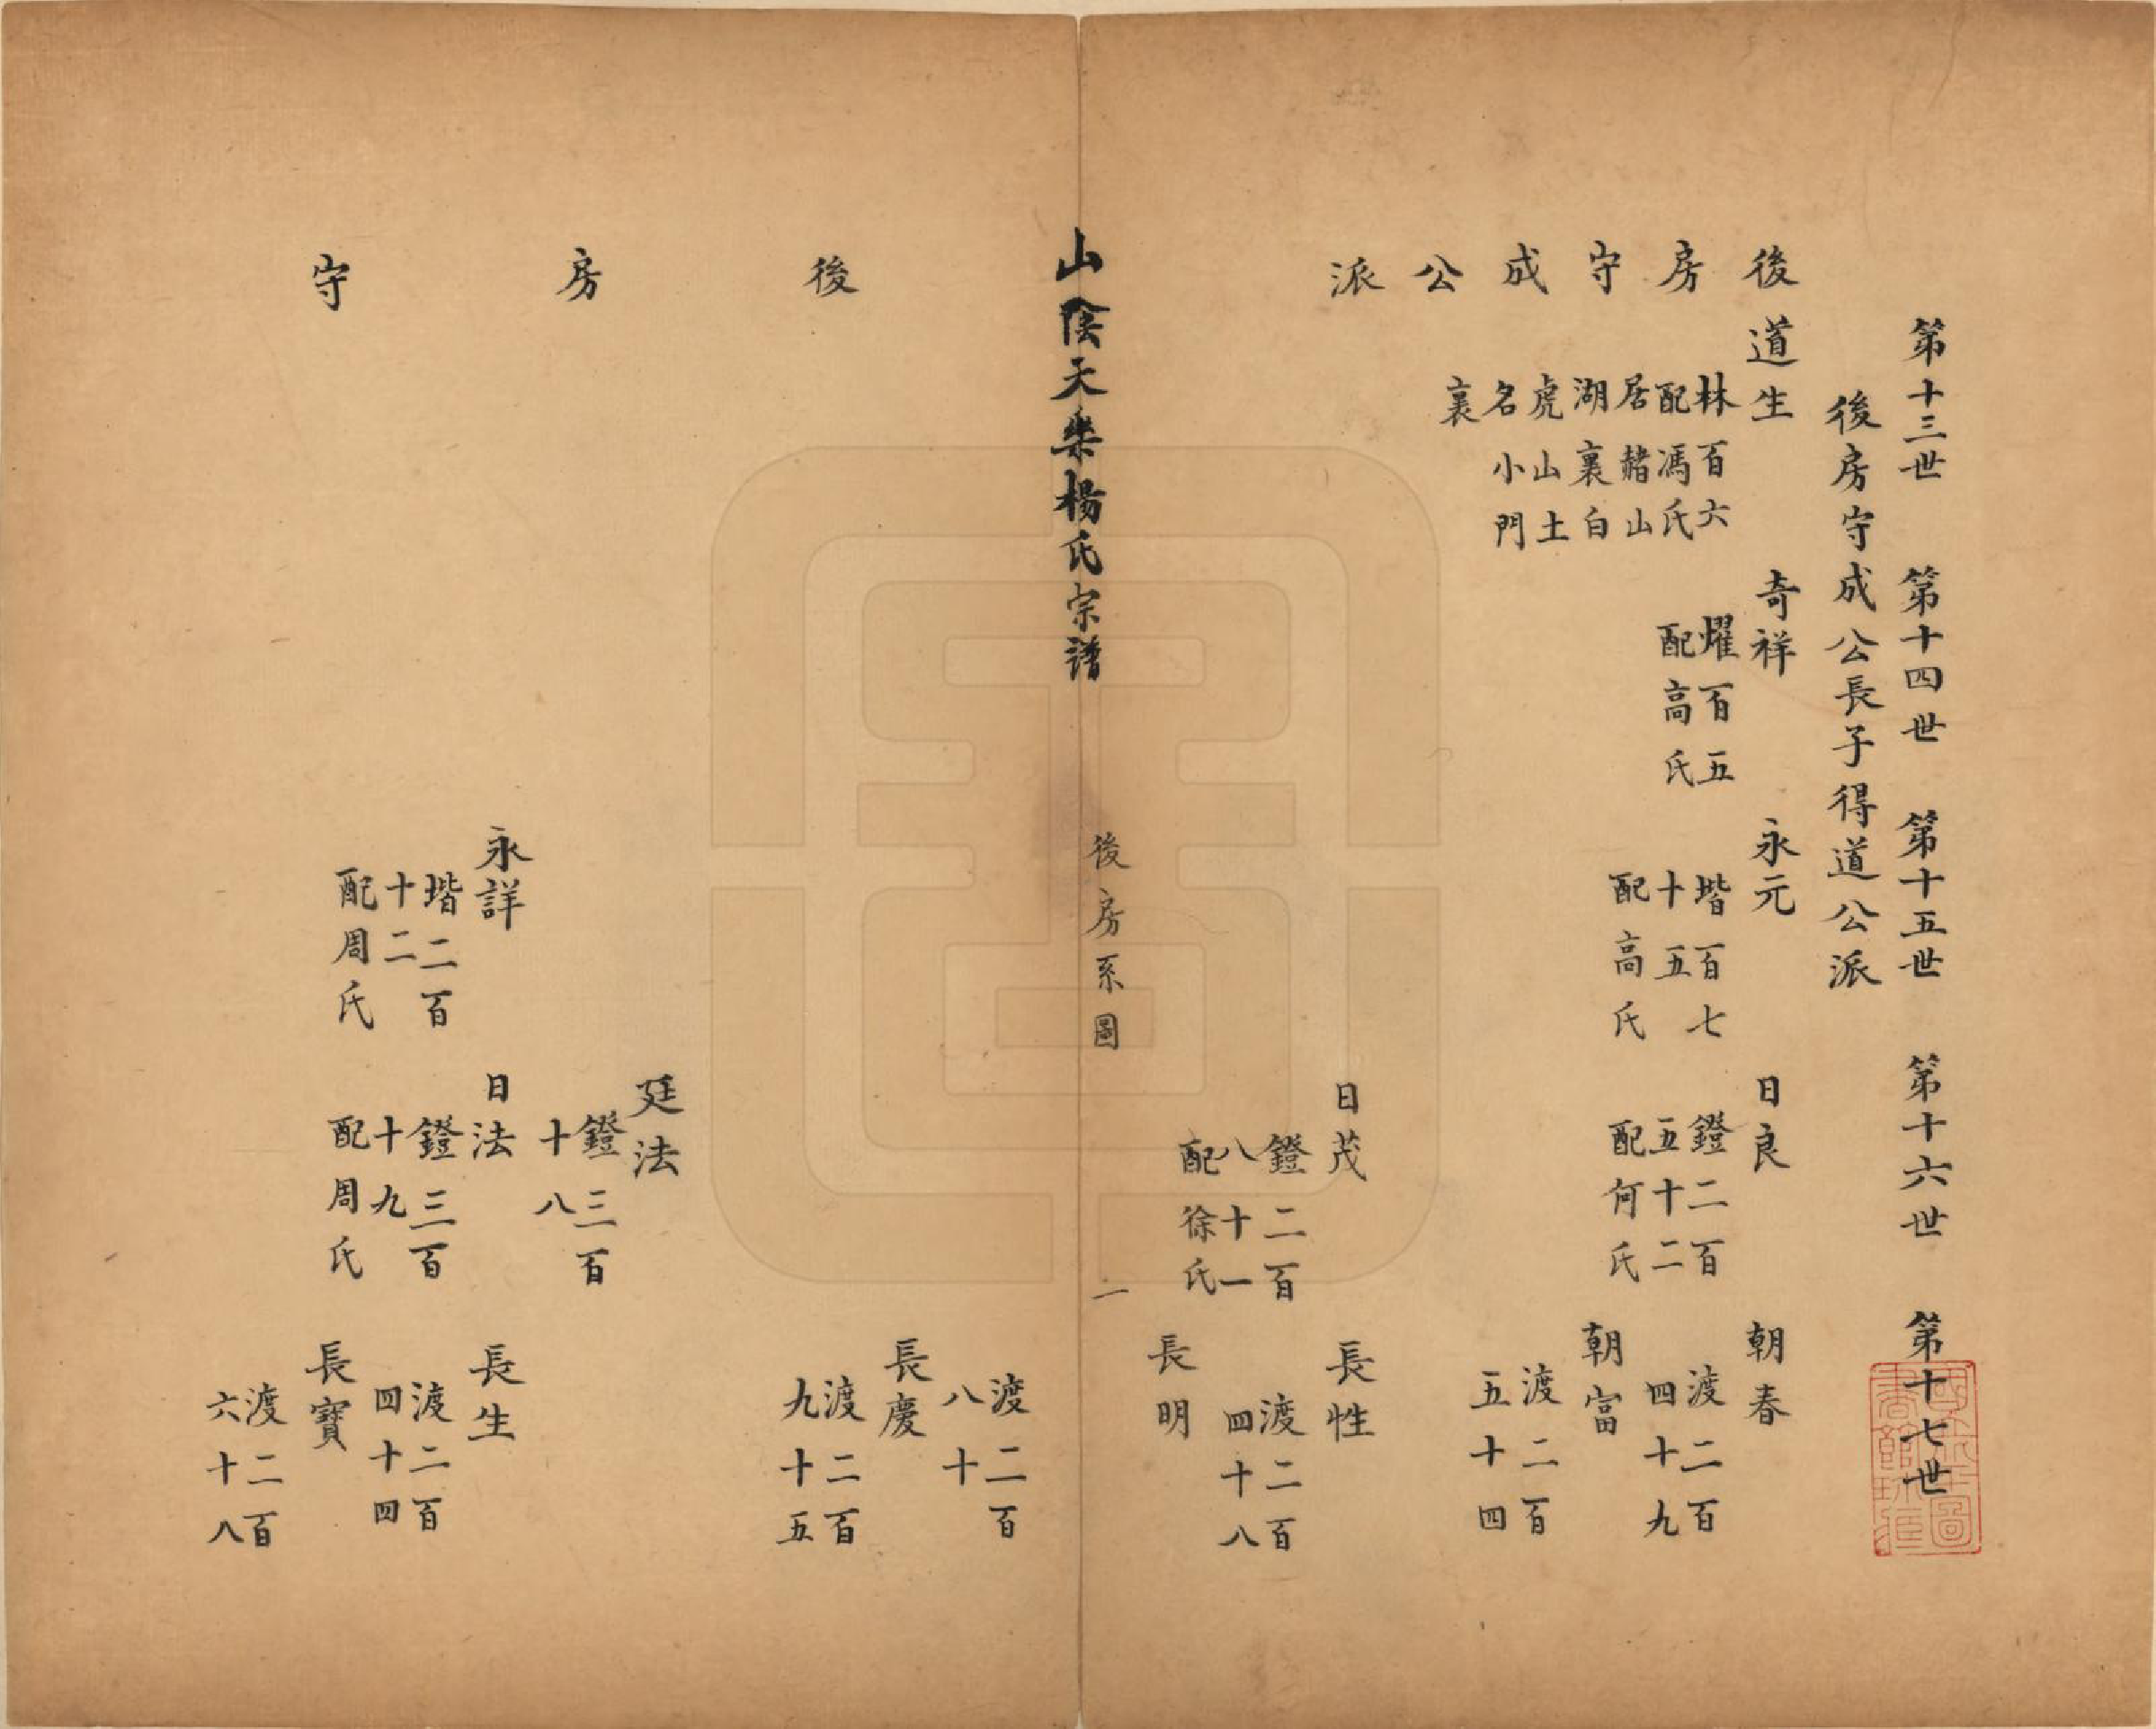 第十三世 第十四世 第十五世 第十六世 第十七世
後房守成公長子得道公派
後房守成公派
道生
林百六
配馮氏
居赭山
湖裏白
虎山土
名小門
裏
奇祥
燿百五
配高氏
永元
堦百七
十五
配高氏
日良
鐙二百
五十二
配何氏
朝春
渡二百
四十九
朝富
渡二百
五十四
日茂
鐙二百
八十一
配徐氏
長性
渡二百
四十八
長明
山陰天樂楊氏宗譜
後房系圖
一
後房守
渡二百
八十
長慶
渡二百
九十五
廷法
鐙三百
十八
永詳
堦二百
十二
配周氏
日法
鐙三百
十九
配周氏
長生
渡二百
四十四
長寶
渡二百
六十八